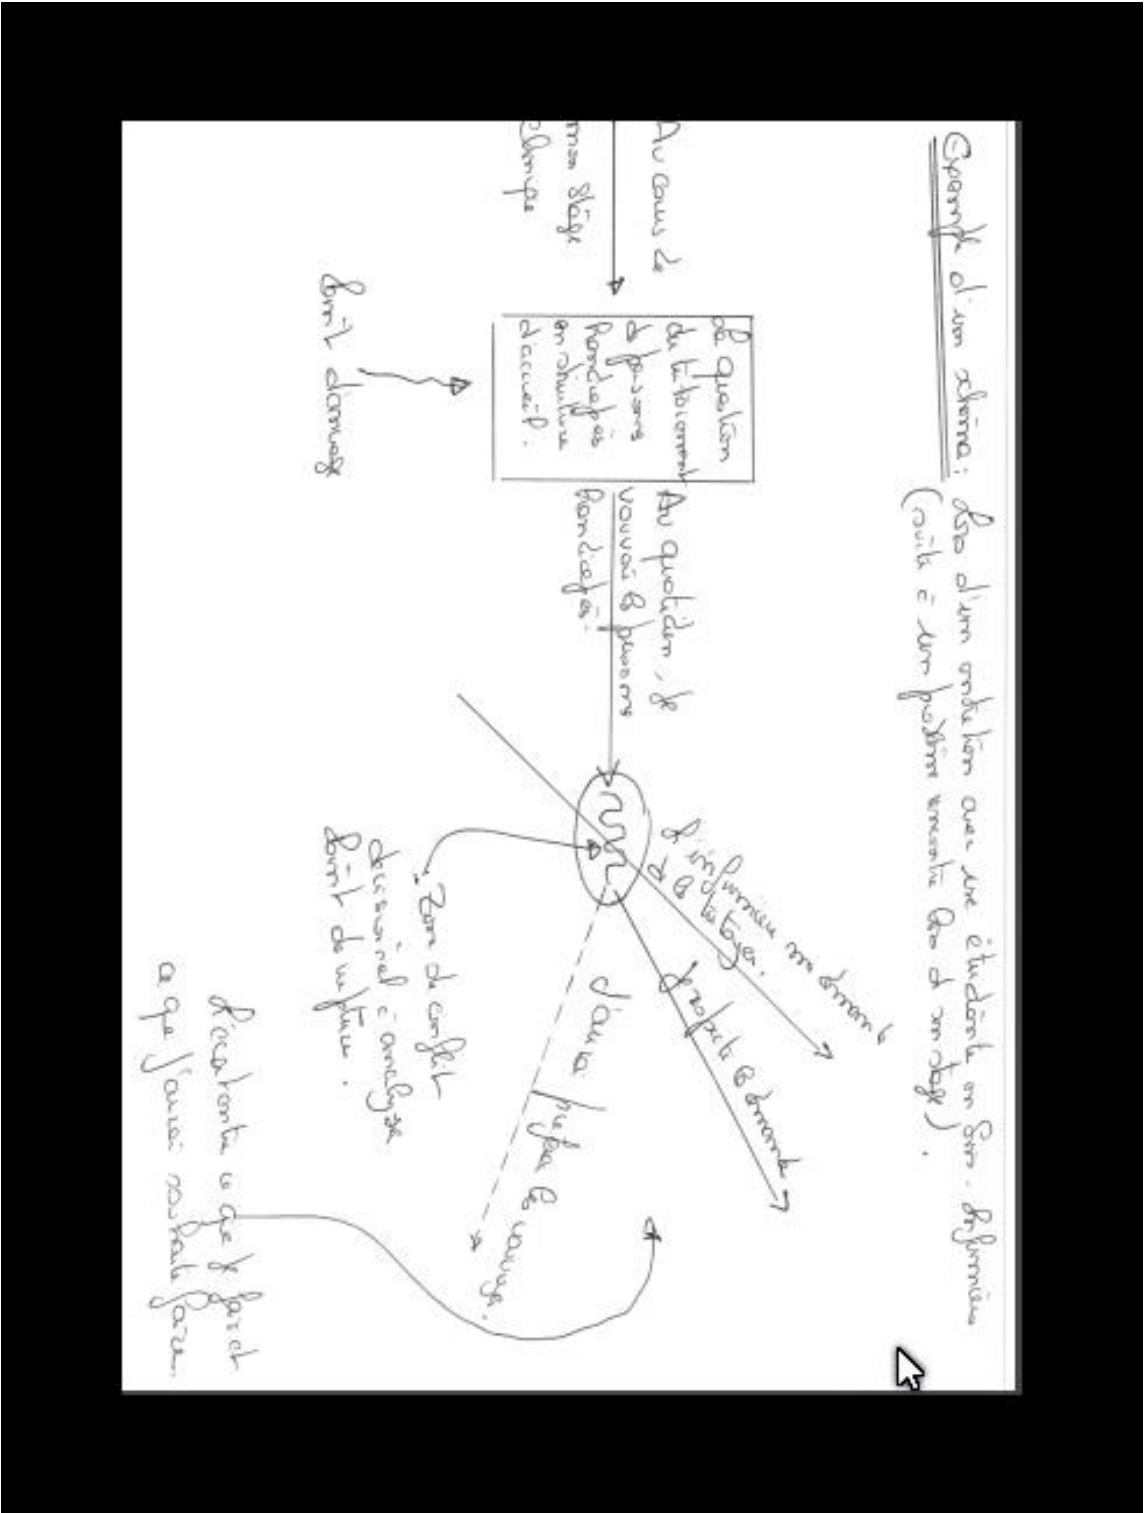 Exemple d'un schéma : Lors d'un entretien avec une étudiante en Soins-Infirmiers
(suite à un problème rencontré lors d'un stage).
Au cours de
mon stage
clinique
La question
du tutoiement
de personnes
handicapées
en structure
d'accueil.
Point d'ancrage
Au quotidien, je
vouvoie les personnes
handicapées.
L'infirmière me demande
de les tutoyer.
Je respecte la demande
J'aurai préféré les vouvoyer.
Zone de conflit
décisionnel à analyser
Point de rupture.
L'écart entre ce que je fais et
ce que j'aurai souhaité faire.